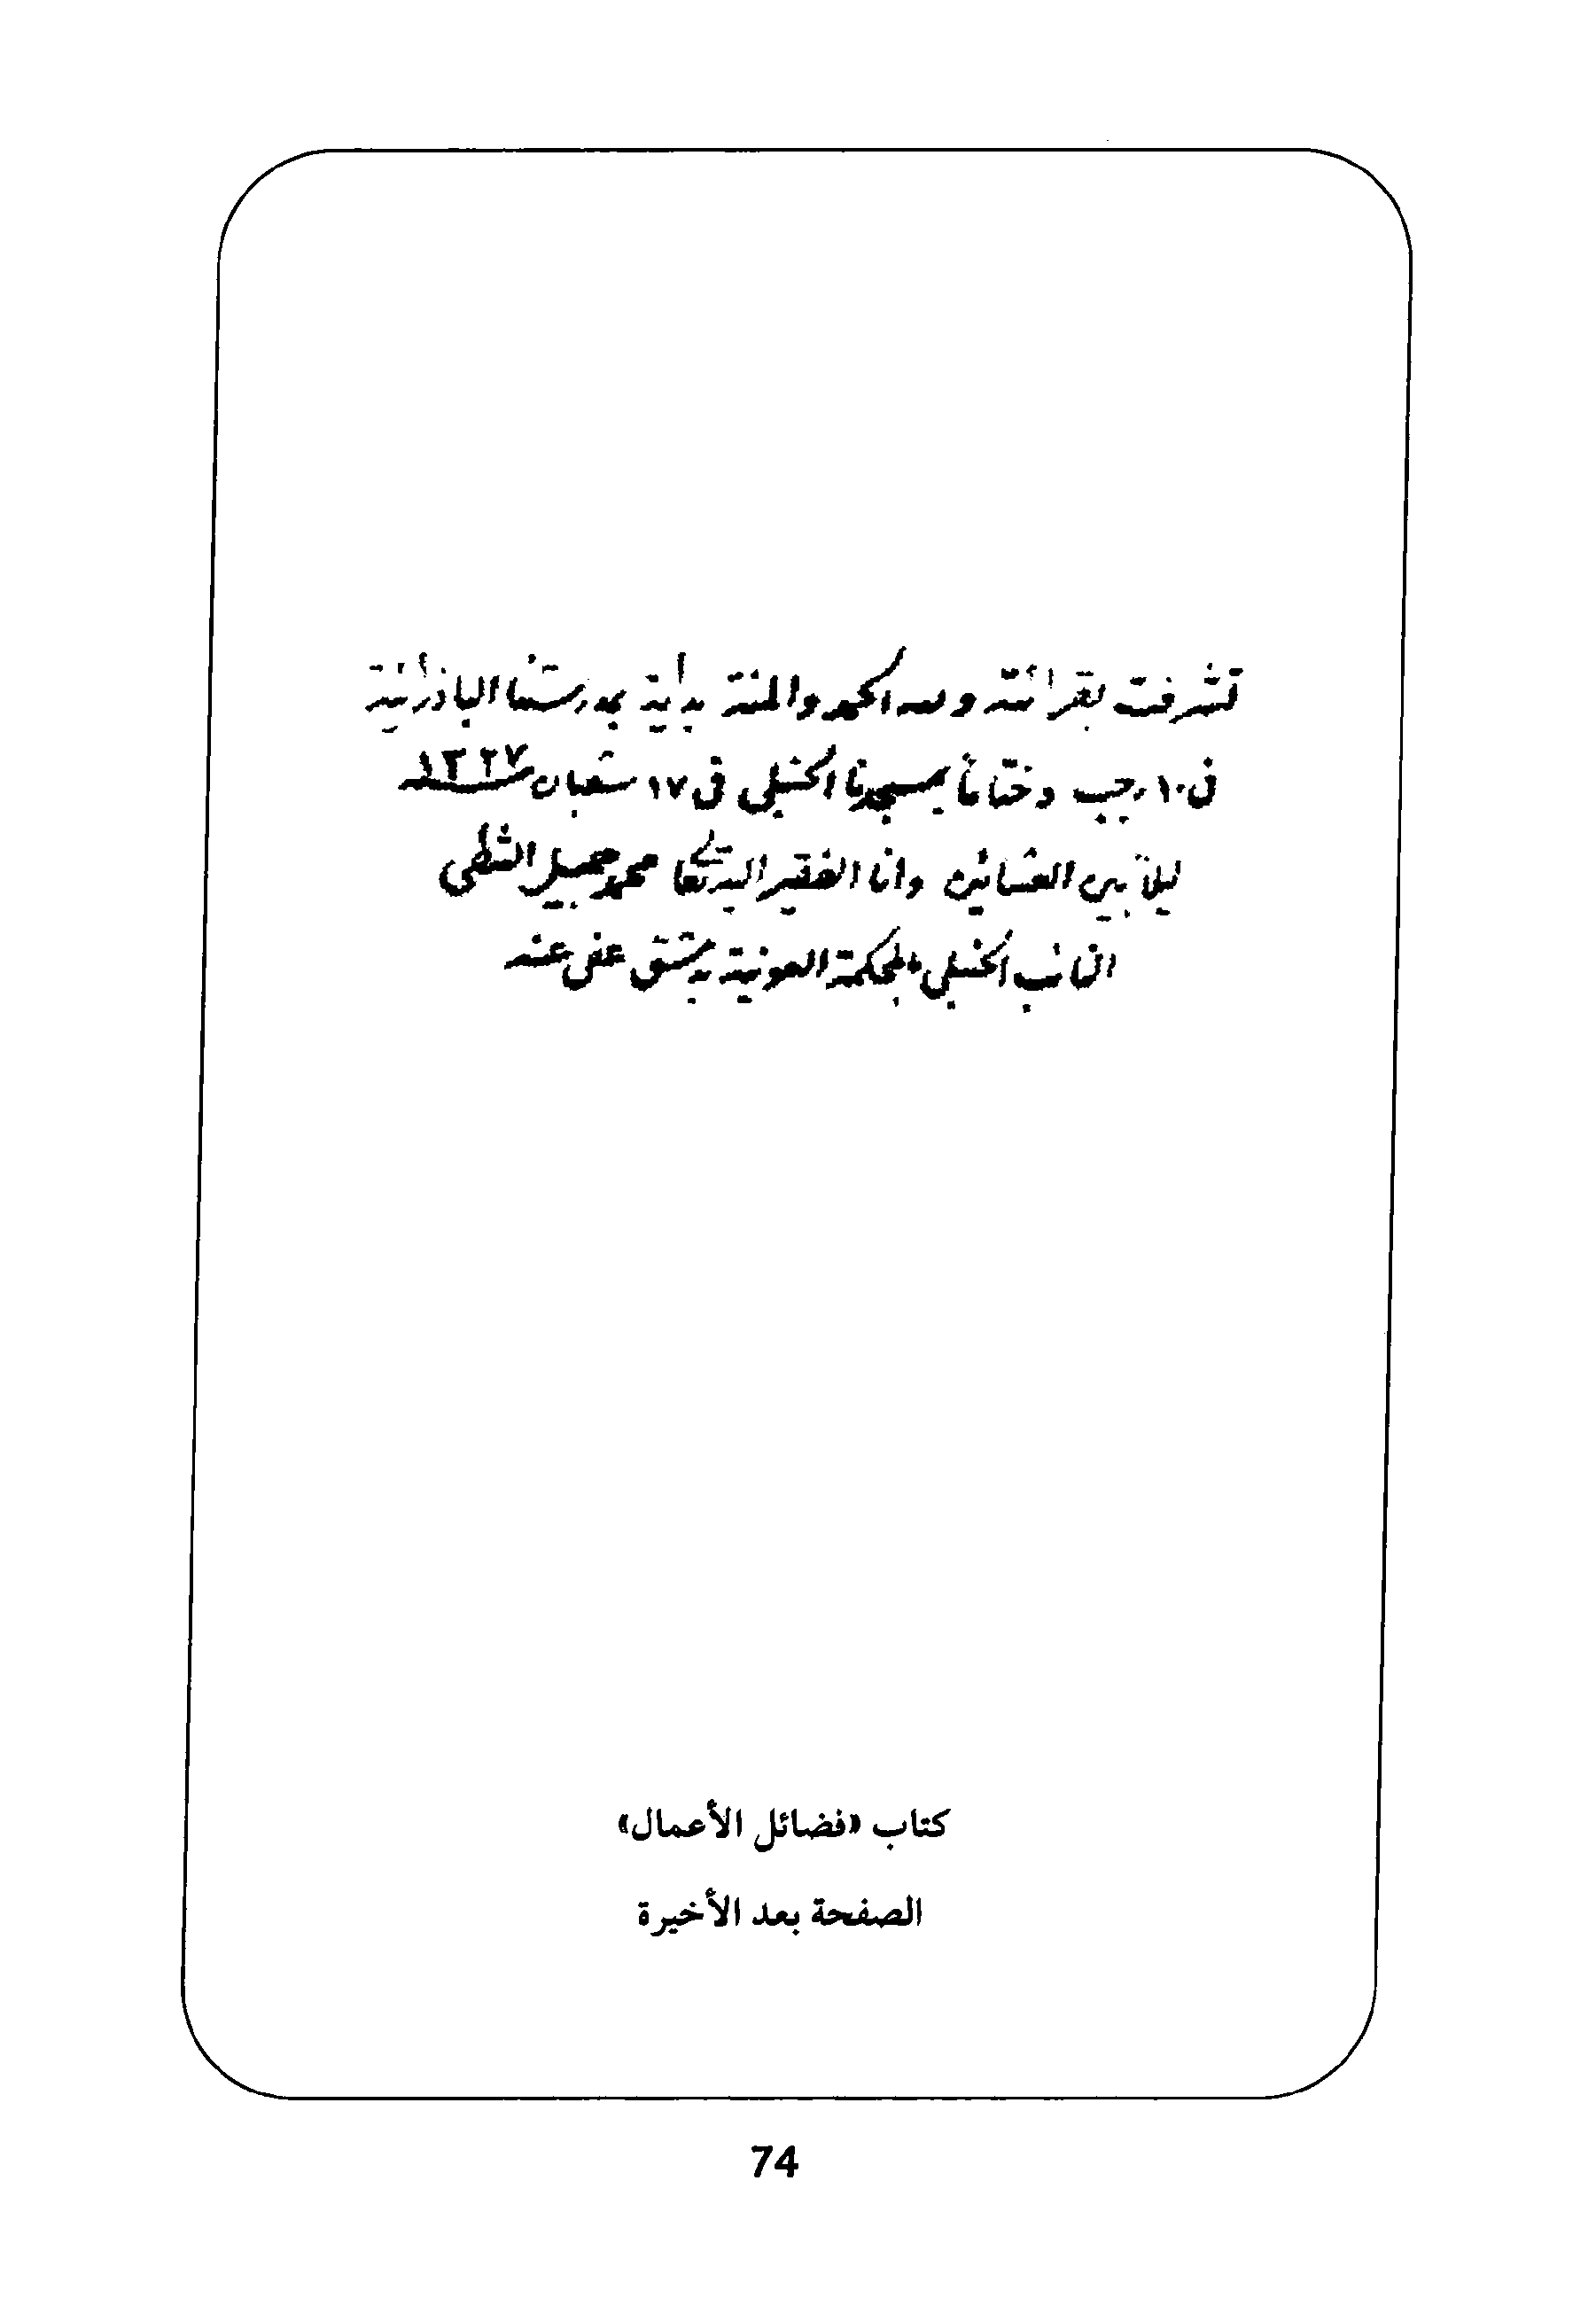 تشرفت بقرائته ولله الحمد والمنة بدأية بمدرستنا الباذرائية
في ١٠ رجب وختاماً بمسجدنا الحنبلي في ١٧ شعبان سنة ١٣٢٧
ليلاً بين العشائين وانا الفقير اليه تعالى محمد جميل الشطي
النائب الحنبلي بالمحكمة العونية بدمشق عفي عنه
كتاب «فضائل الأعمال»
الصفحة بعد الأخيرة
74